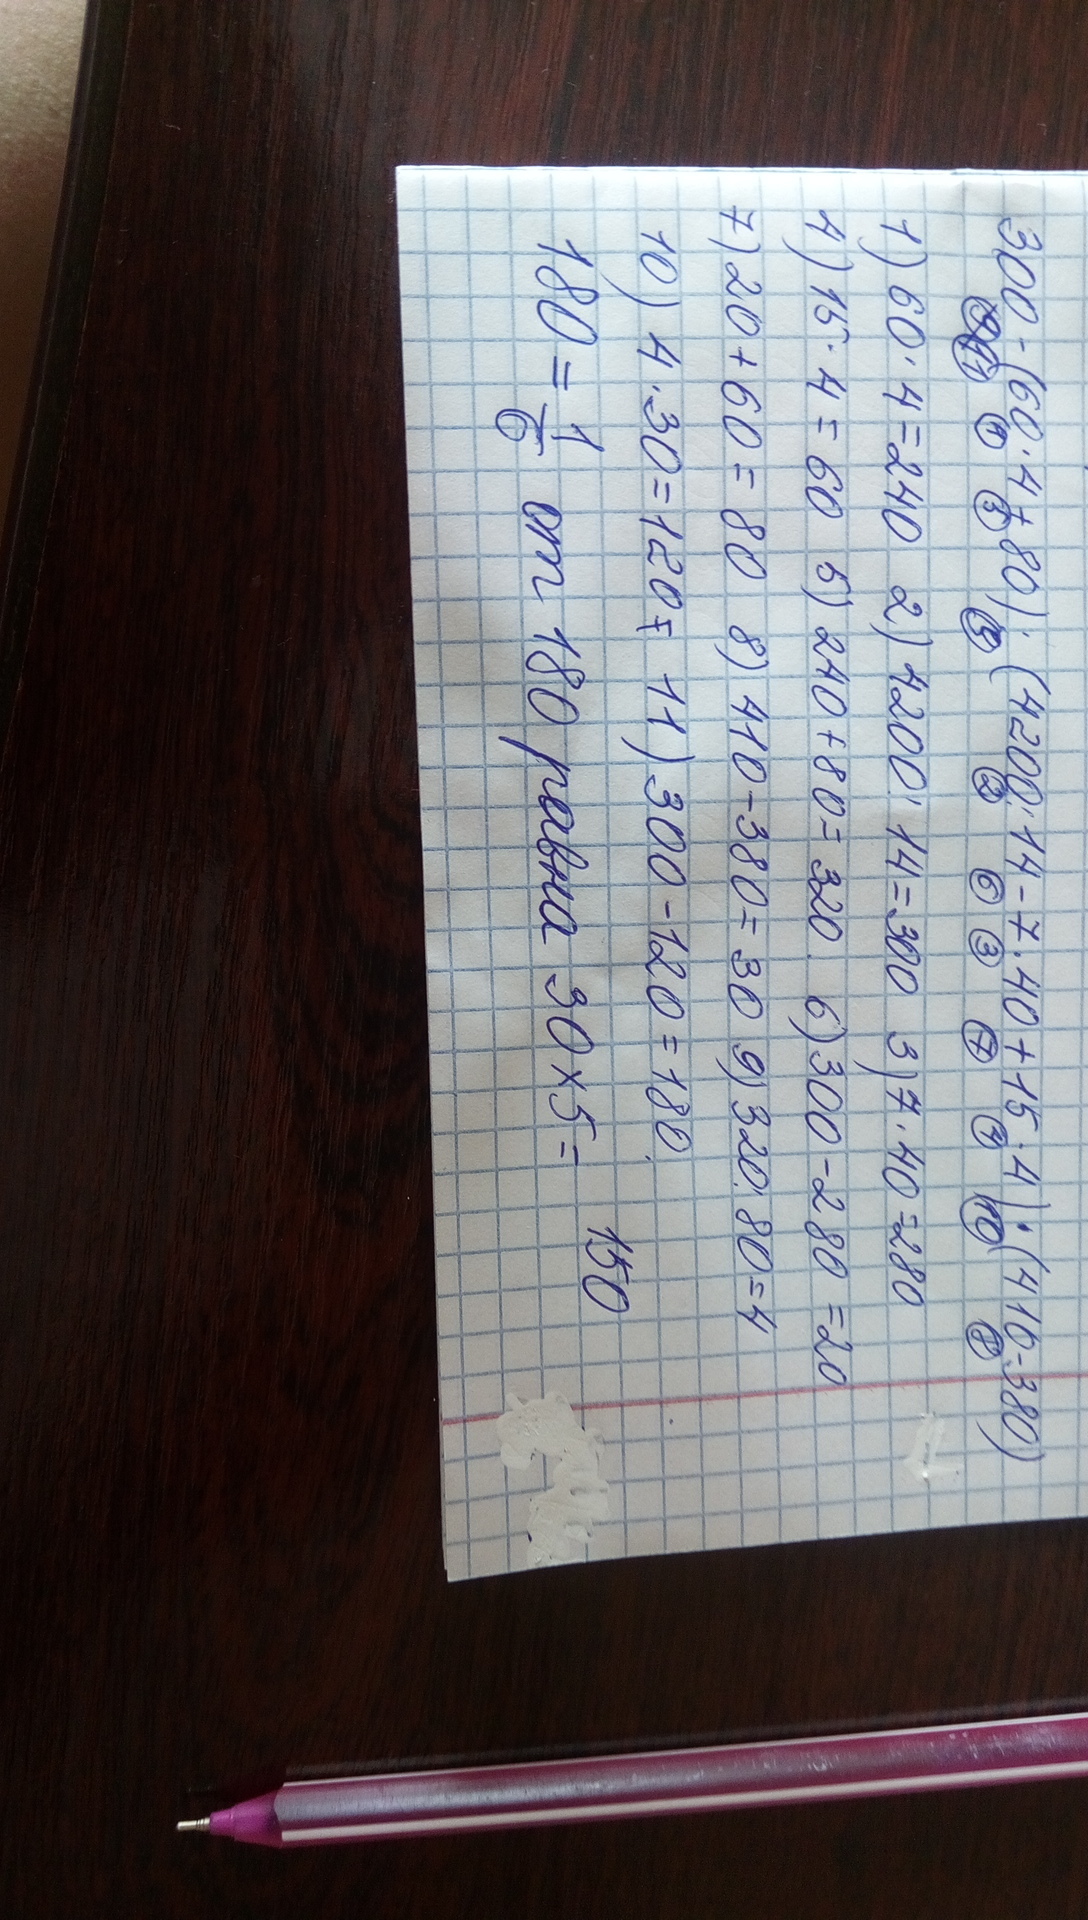 300-(60·4+80):(4200:14-7·40+15·4)·(410-380)
11 1 5 9 2 6 3 7 4 10 8
1) 60·4=240 2) 4200:14=300 3) 7·40=280
4) 15·4=60 5) 240+80=320. 6) 300-280=20
7) 20+60=80 8) 410-380=30 9) 320:80=4
10) 4·30=120 11) 300-120=180.
180=1/6 от 180 равна 30×5=
150